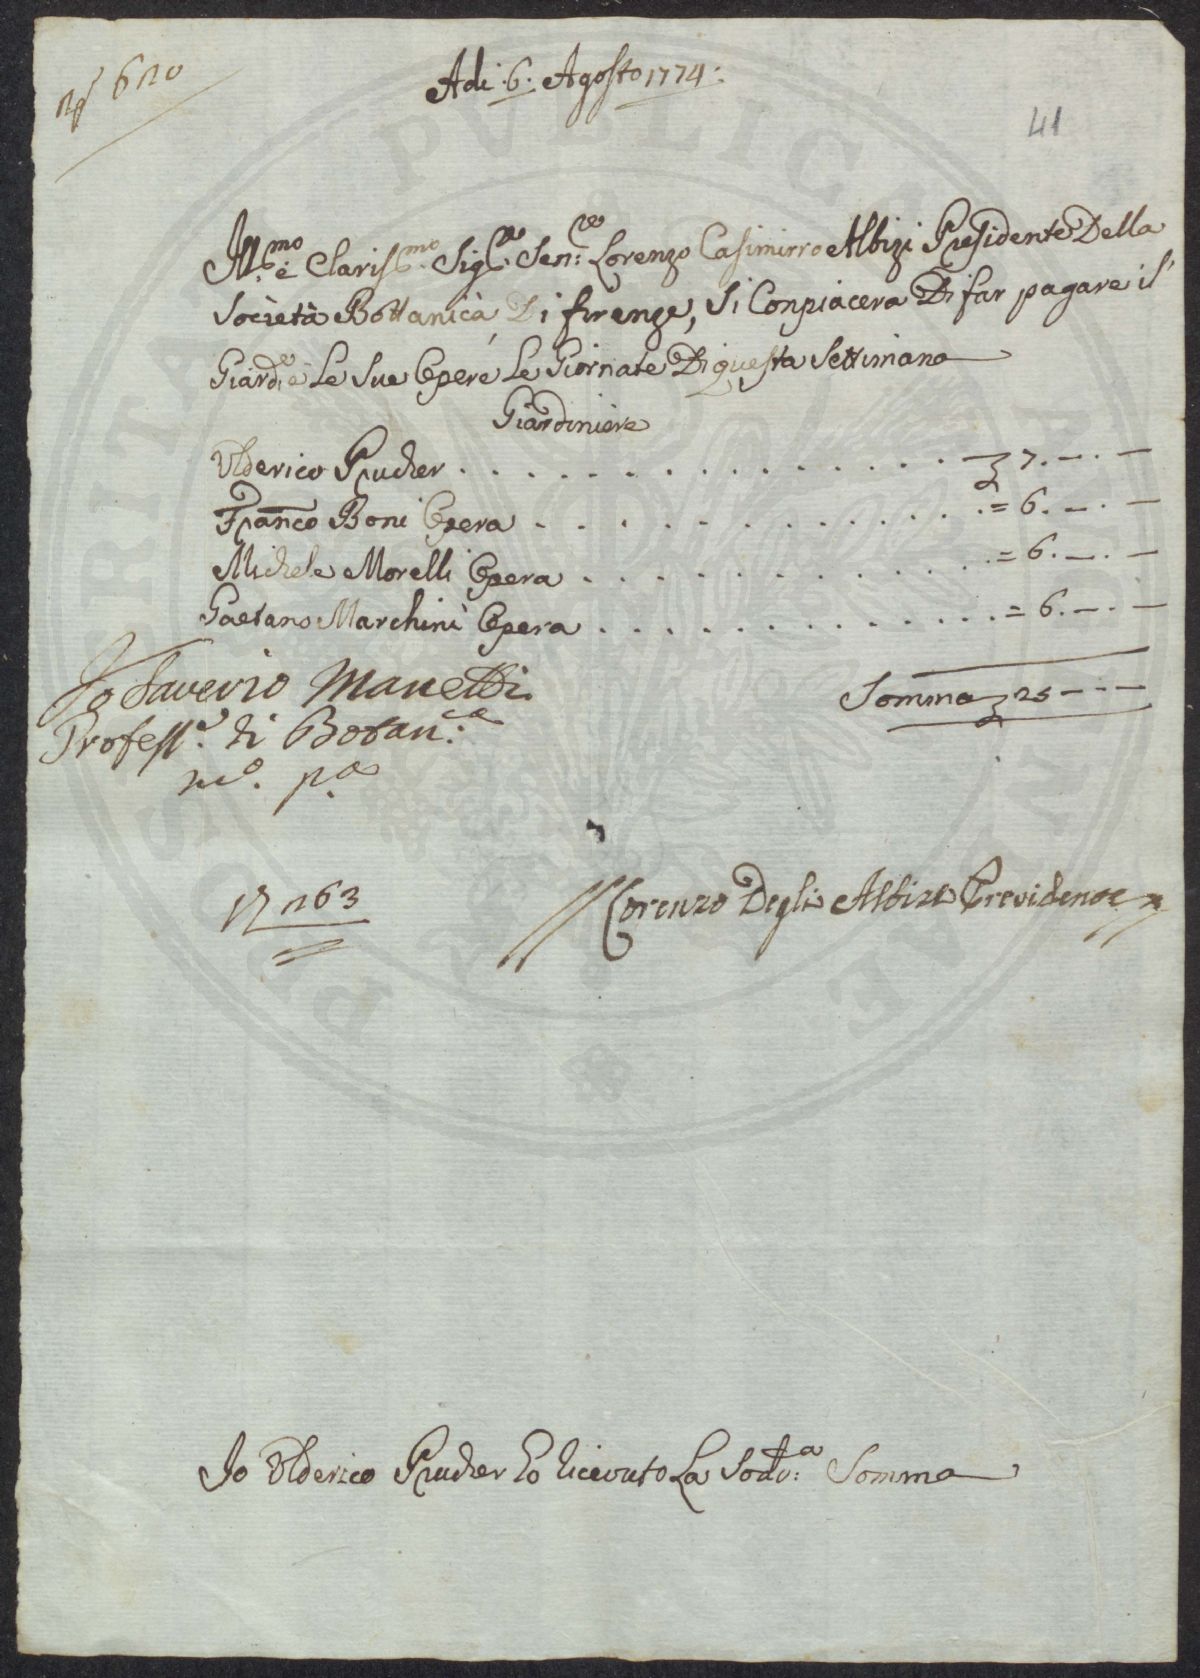 Adi .6. Agosto 1774:
41
Ill.mo è Claris.mo Sig.re Sen.re Lorenzo Casimirro Albizi Presidente Della
Società Bottanica, Di firenze, Si Conpiacera Di far pagare il
Giard.e è Le Sue Opere Le Giornate Di questa Settimana
Giardiniere
Ulderico Prucher . . . . . . . . . . . . . . . . 7.—.—
Fran.co Boni Opera . . . . . . . . . . . . . . = 6.—.—
Michele Morelli Opera . . . . . . . . . . . . = 6.—.—
Gaetano Marchini Opera . . . . . . . . . . . . = 6.—.—
Somma 25———
Io Saverio Manetti
Profess.e di Botan.ca
m.o p.a
163
// Lorenzo Degli Albizi Previdente //
Io Ulderico Prucher ho ricevuto La Sod.a Somma
PVBLICAE
PROSPERITATI